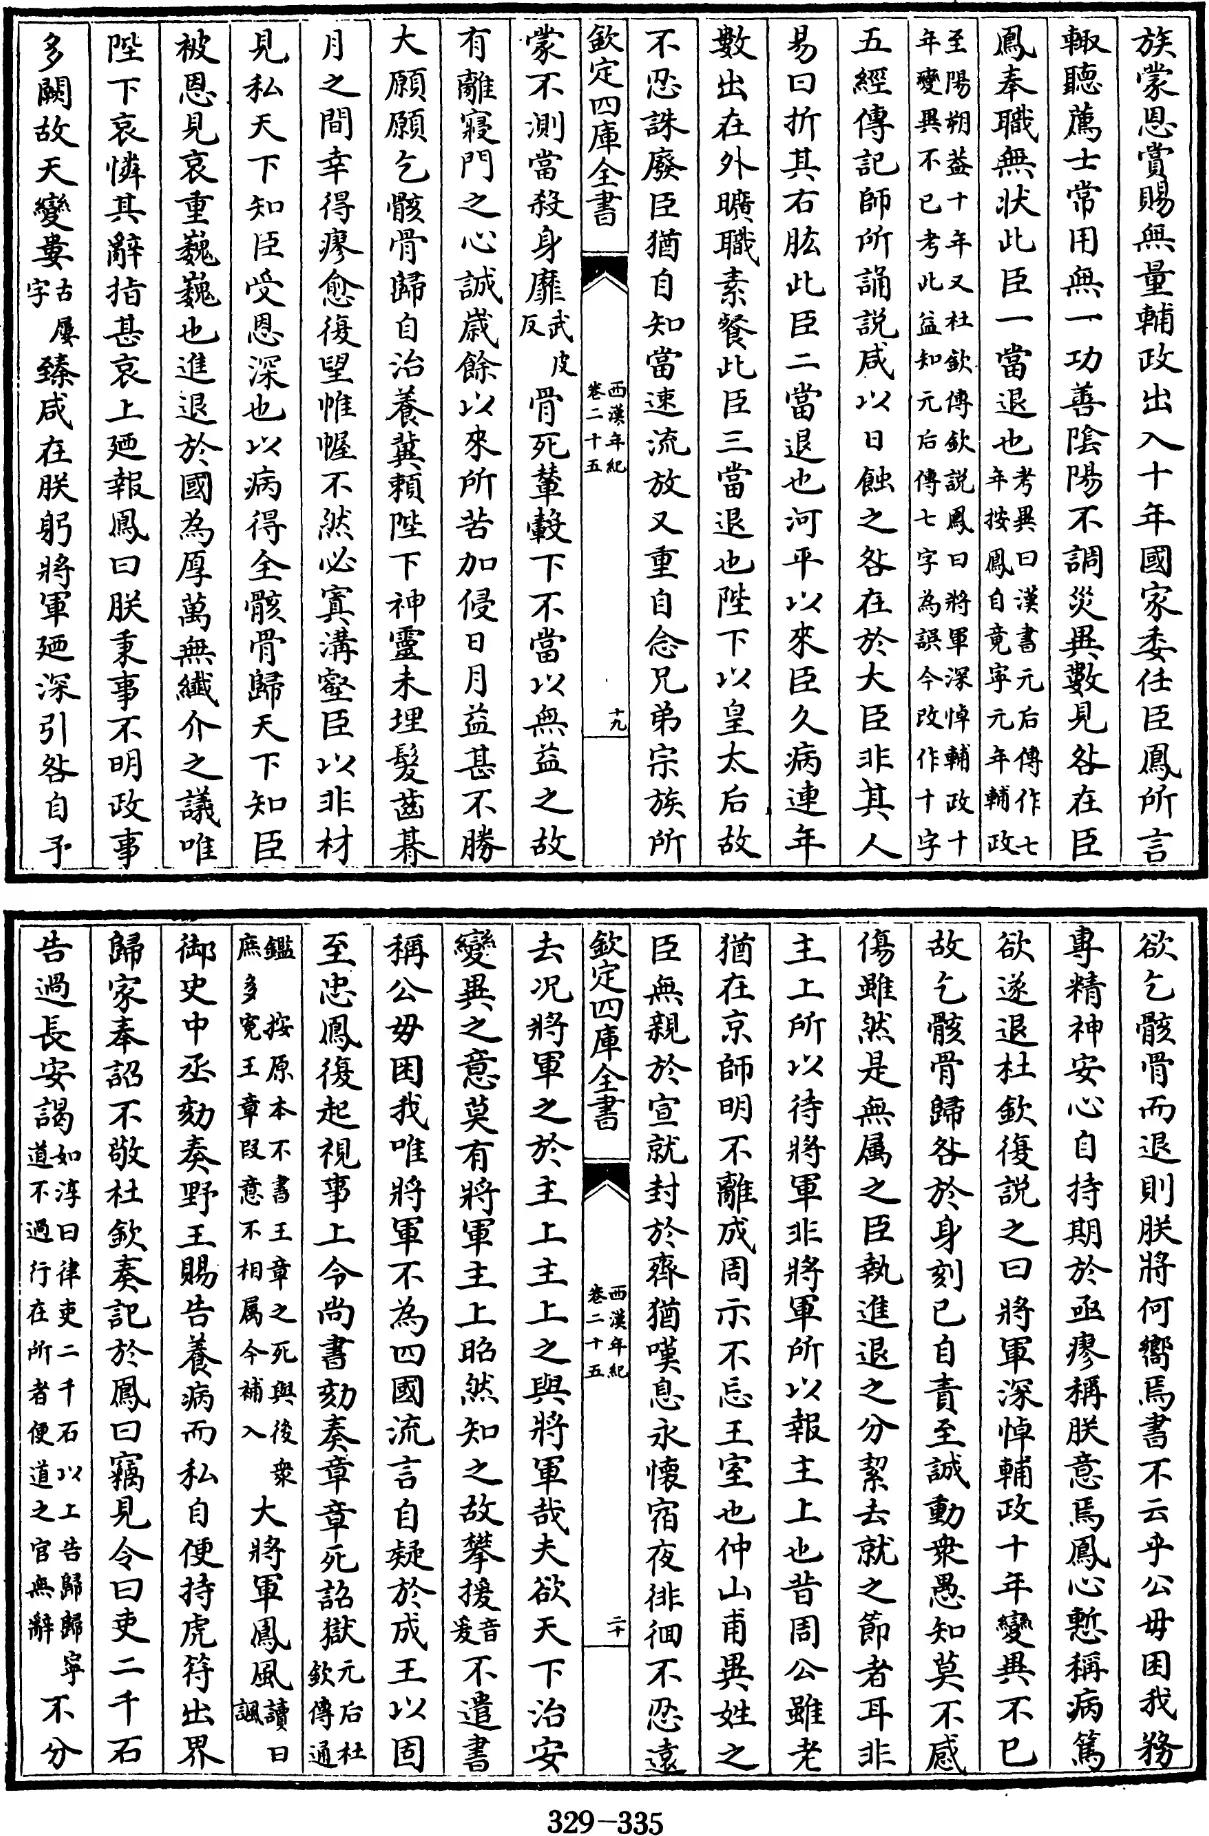 族蒙恩賞賜無量輔政出入十年國家委任臣鳳所言
輙聽薦士常用無一功善陰陽不調災異數見咎在臣
鳳奉職無狀此臣一當退也考異曰漢書元后傳作七年按鳳自竟寧元年輔政
至陽朔葢十年又杜欽傳欽説鳳曰將軍深悼輔政十年變異不已考此益知元后傳七字為誤今改作十字
五經傳記師所誦説咸以日蝕之咎在於大臣非其人
易曰折其右肱此臣二當退也河平以來臣久病連年
數出在外曠職素餐此臣三當退也陛下以皇太后故
不忍誅廢臣猶自知當速流放又重自念兄弟宗族所
欽定四庫全書 西漢年紀卷二十五 十九
蒙不測當殺身靡武皮反骨死輦轂下不當以無益之故
有離寢門之心誠歲餘以來所苦加侵日月益甚不勝
大願願乞骸骨歸自治養冀頼陛下神靈未埋髮齒朞
月之間幸得瘳愈復望帷幄不然必寘溝壑臣以非材
見私天下知臣受恩深也以病得全骸骨歸天下知臣
被恩見哀重巍巍也進退於國為厚萬無纎介之議唯
陛下哀憐其辭指甚哀上廼報鳳曰朕秉事不明政事
多闕故天變婁古屢字臻咸在朕躬將軍廼深引咎自予
欲乞骸骨而退則朕將何嚮焉書不云乎公毋困我務
專精神安心自持期於亟瘳稱朕意焉鳳心慙稱病篤
欲遂退杜欽復説之曰將軍深悼輔政十年變異不已
故乞骸骨歸咎於身刻已自責至誠動衆愚知莫不感
傷雖然是無属之臣執進退之分絜去就之節者耳非
主上所以待將軍非將軍所以報主上也昔周公雖老
猶在京師明不離成周示不忘王室也仲山甫異姓之
臣無親於宣就封於齊猶嘆息永懷宿夜徘徊不忍遠
欽定四庫全書 西漢年紀卷二十五 二十
去况將軍之於主上主上之與將軍哉夫欲天下治安
變異之意莫有將軍主上昭然知之故攀援音爰不遣書
稱公毋困我唯將軍不為四國流言自疑於成王以固
至忠鳳復起視事上令尚書劾奏章章死詔獄元后杜欽傳通
鑑 按原本不書王章之死與後衆庶多寃王章叚意不相属今補入大將軍鳳風讀曰諷
御史中丞劾奏野王賜告養病而私自便持虎符出界
歸家奉詔不敬杜欽奏記於鳳曰竊見令曰吏二千石
告過長安謁如淳曰律吏二千石以上告歸歸寧道不過行在所者便道之官無辭不分
329-335